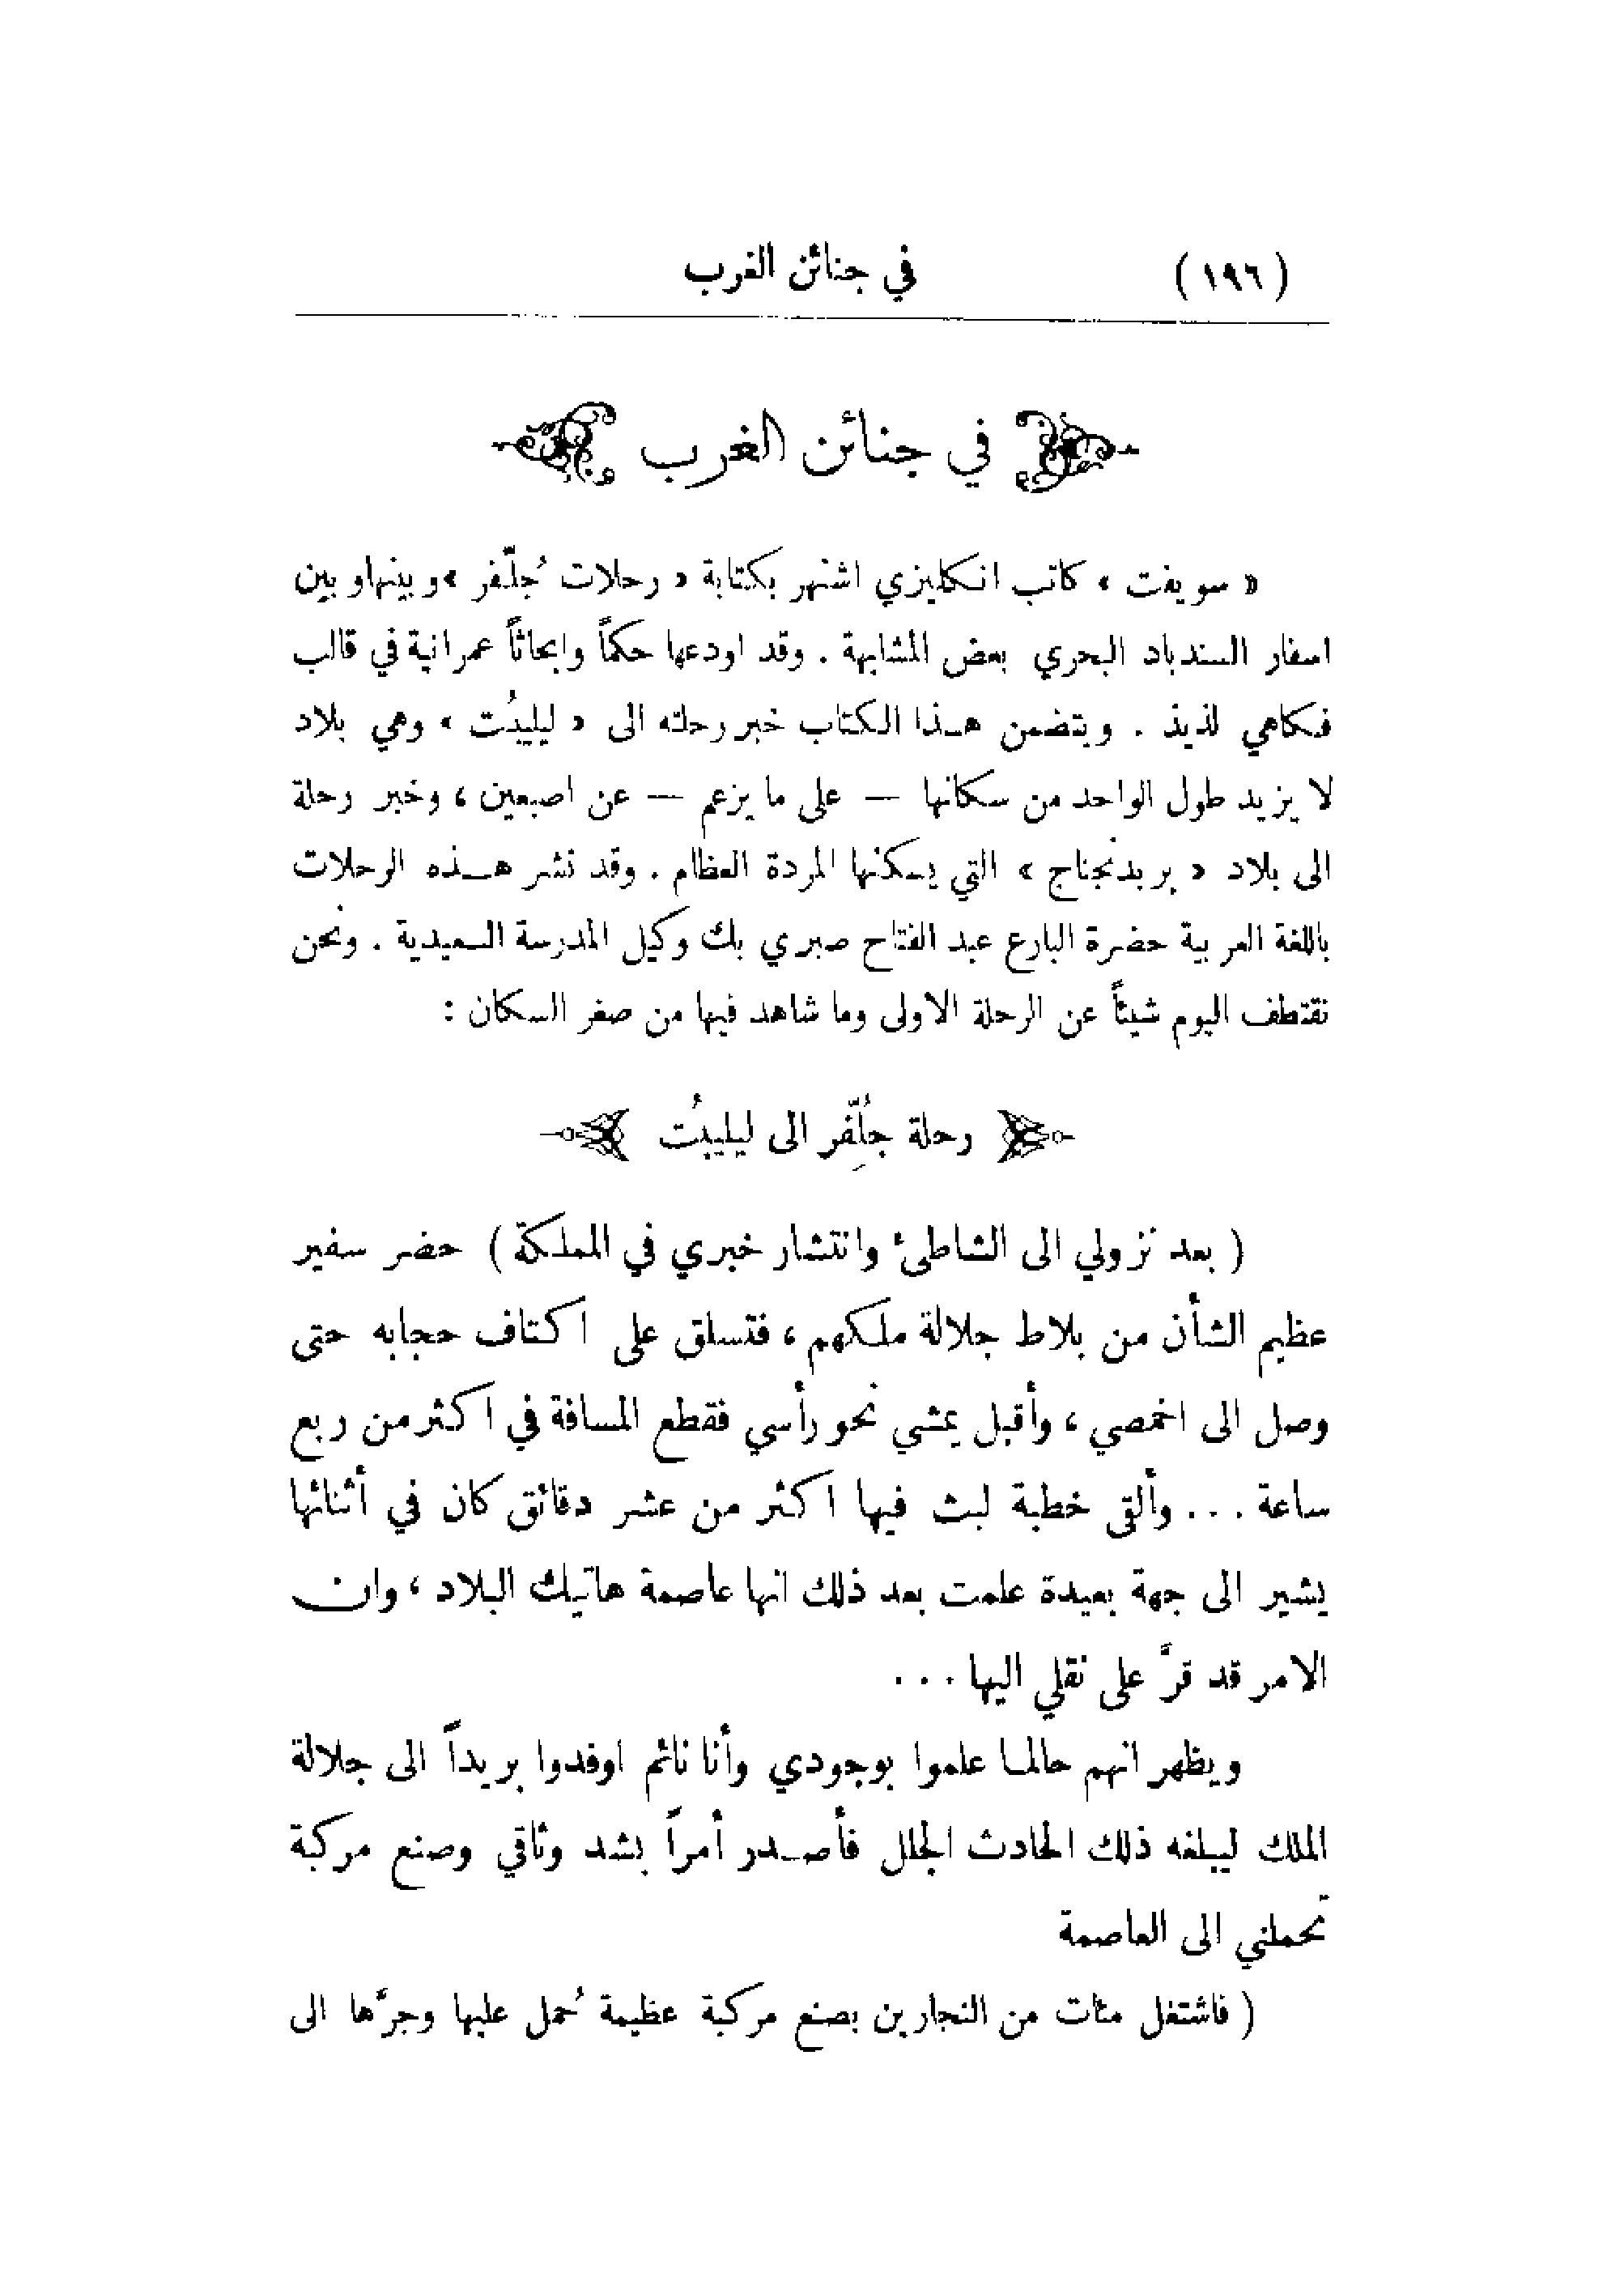 (١٩٦) في جنائن الغرب
في جنائن الغرب
« سويفت » كاتب انكليزي اشتهر بكتابة « رحلات جُلّفر » وبينها وبين
اسفار السندباد البحري بعض المشابهة . وقد اودعها حكماً وابحاثاً عمرانية في قالب
فكاهي لذيذ . ويتضمن هذا الكتاب خبر رحلته الى « ليليبُت » وهي بلاد
لا يزيد طول الواحد من سكانها — على ما يزعم — عن اصبعين ، وخبر رحلة
الى بلاد « بربدنجناج » التي يسكنها المردة العظام . وقد نشر هذه الرحلات
باللغة العربية حضرة البارع عبد الفتاح صبري بك وكيل المدرسة السعيدية . ونحن
نقتطف اليوم شيئاً عن الرحلة الاولى وما شاهد فيها من صغر السكان :
رحلة جُلِّفر الى ليليبُت
( بعد نزولي الى الشاطئ وانتشار خبري في المملكة ) حضر سفير
عظيم الشأن من بلاط جلالة ملكهم ، فتسلق على اكتاف حجابه حتى
وصل الى اخمصي ، وأقبل يمشي نحو رأسي فقطع المسافة في اكثر من ربع
ساعة ... وألقى خطبة لبث فيها اكثر من عشر دقائق كان في أثنائها
يشير الى جهة بعيدة علمت بعد ذلك انها عاصمة هاتيك البلاد ، وان
الامر قد قرَّ على نقلي اليها ...
ويظهر انهم حالما علموا بوجودي وأنا نائم اوفدوا بريداً الى جلالة
الملك ليبلغه ذلك الحادث الجلل فأصدر أمراً بشد وثاقي وصنع مركبة
تحملني الى العاصمة
( فاشتغل مئات من النجارين بصنع مركبة عظيمة حُمل عليها وجرَّها الى